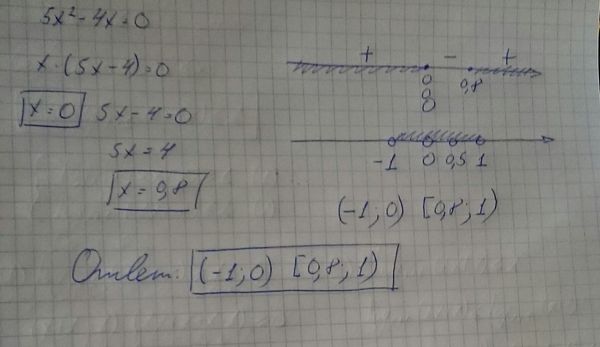 5x² - 4x = 0
x · (5x - 4) = 0
x = 0 5x - 4 = 0
5x = 4
x = 0,8
+ - +
0 0,8
0
0
-1 0 0,5 1
(-1; 0) [0,8; 1)
Ответ: (-1; 0) [0,8; 1)